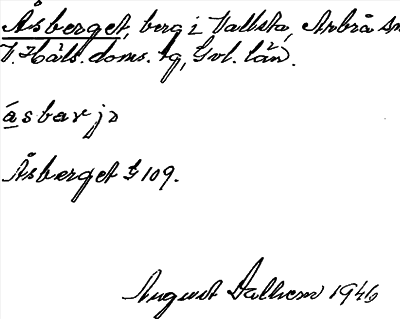 Åsberget, berg i Vallsta, Arbrå sn
V. Häls. doms. tg, Gvl. län.
ásbarjɔ
Åsberget G 109.
August Dalhem 1946